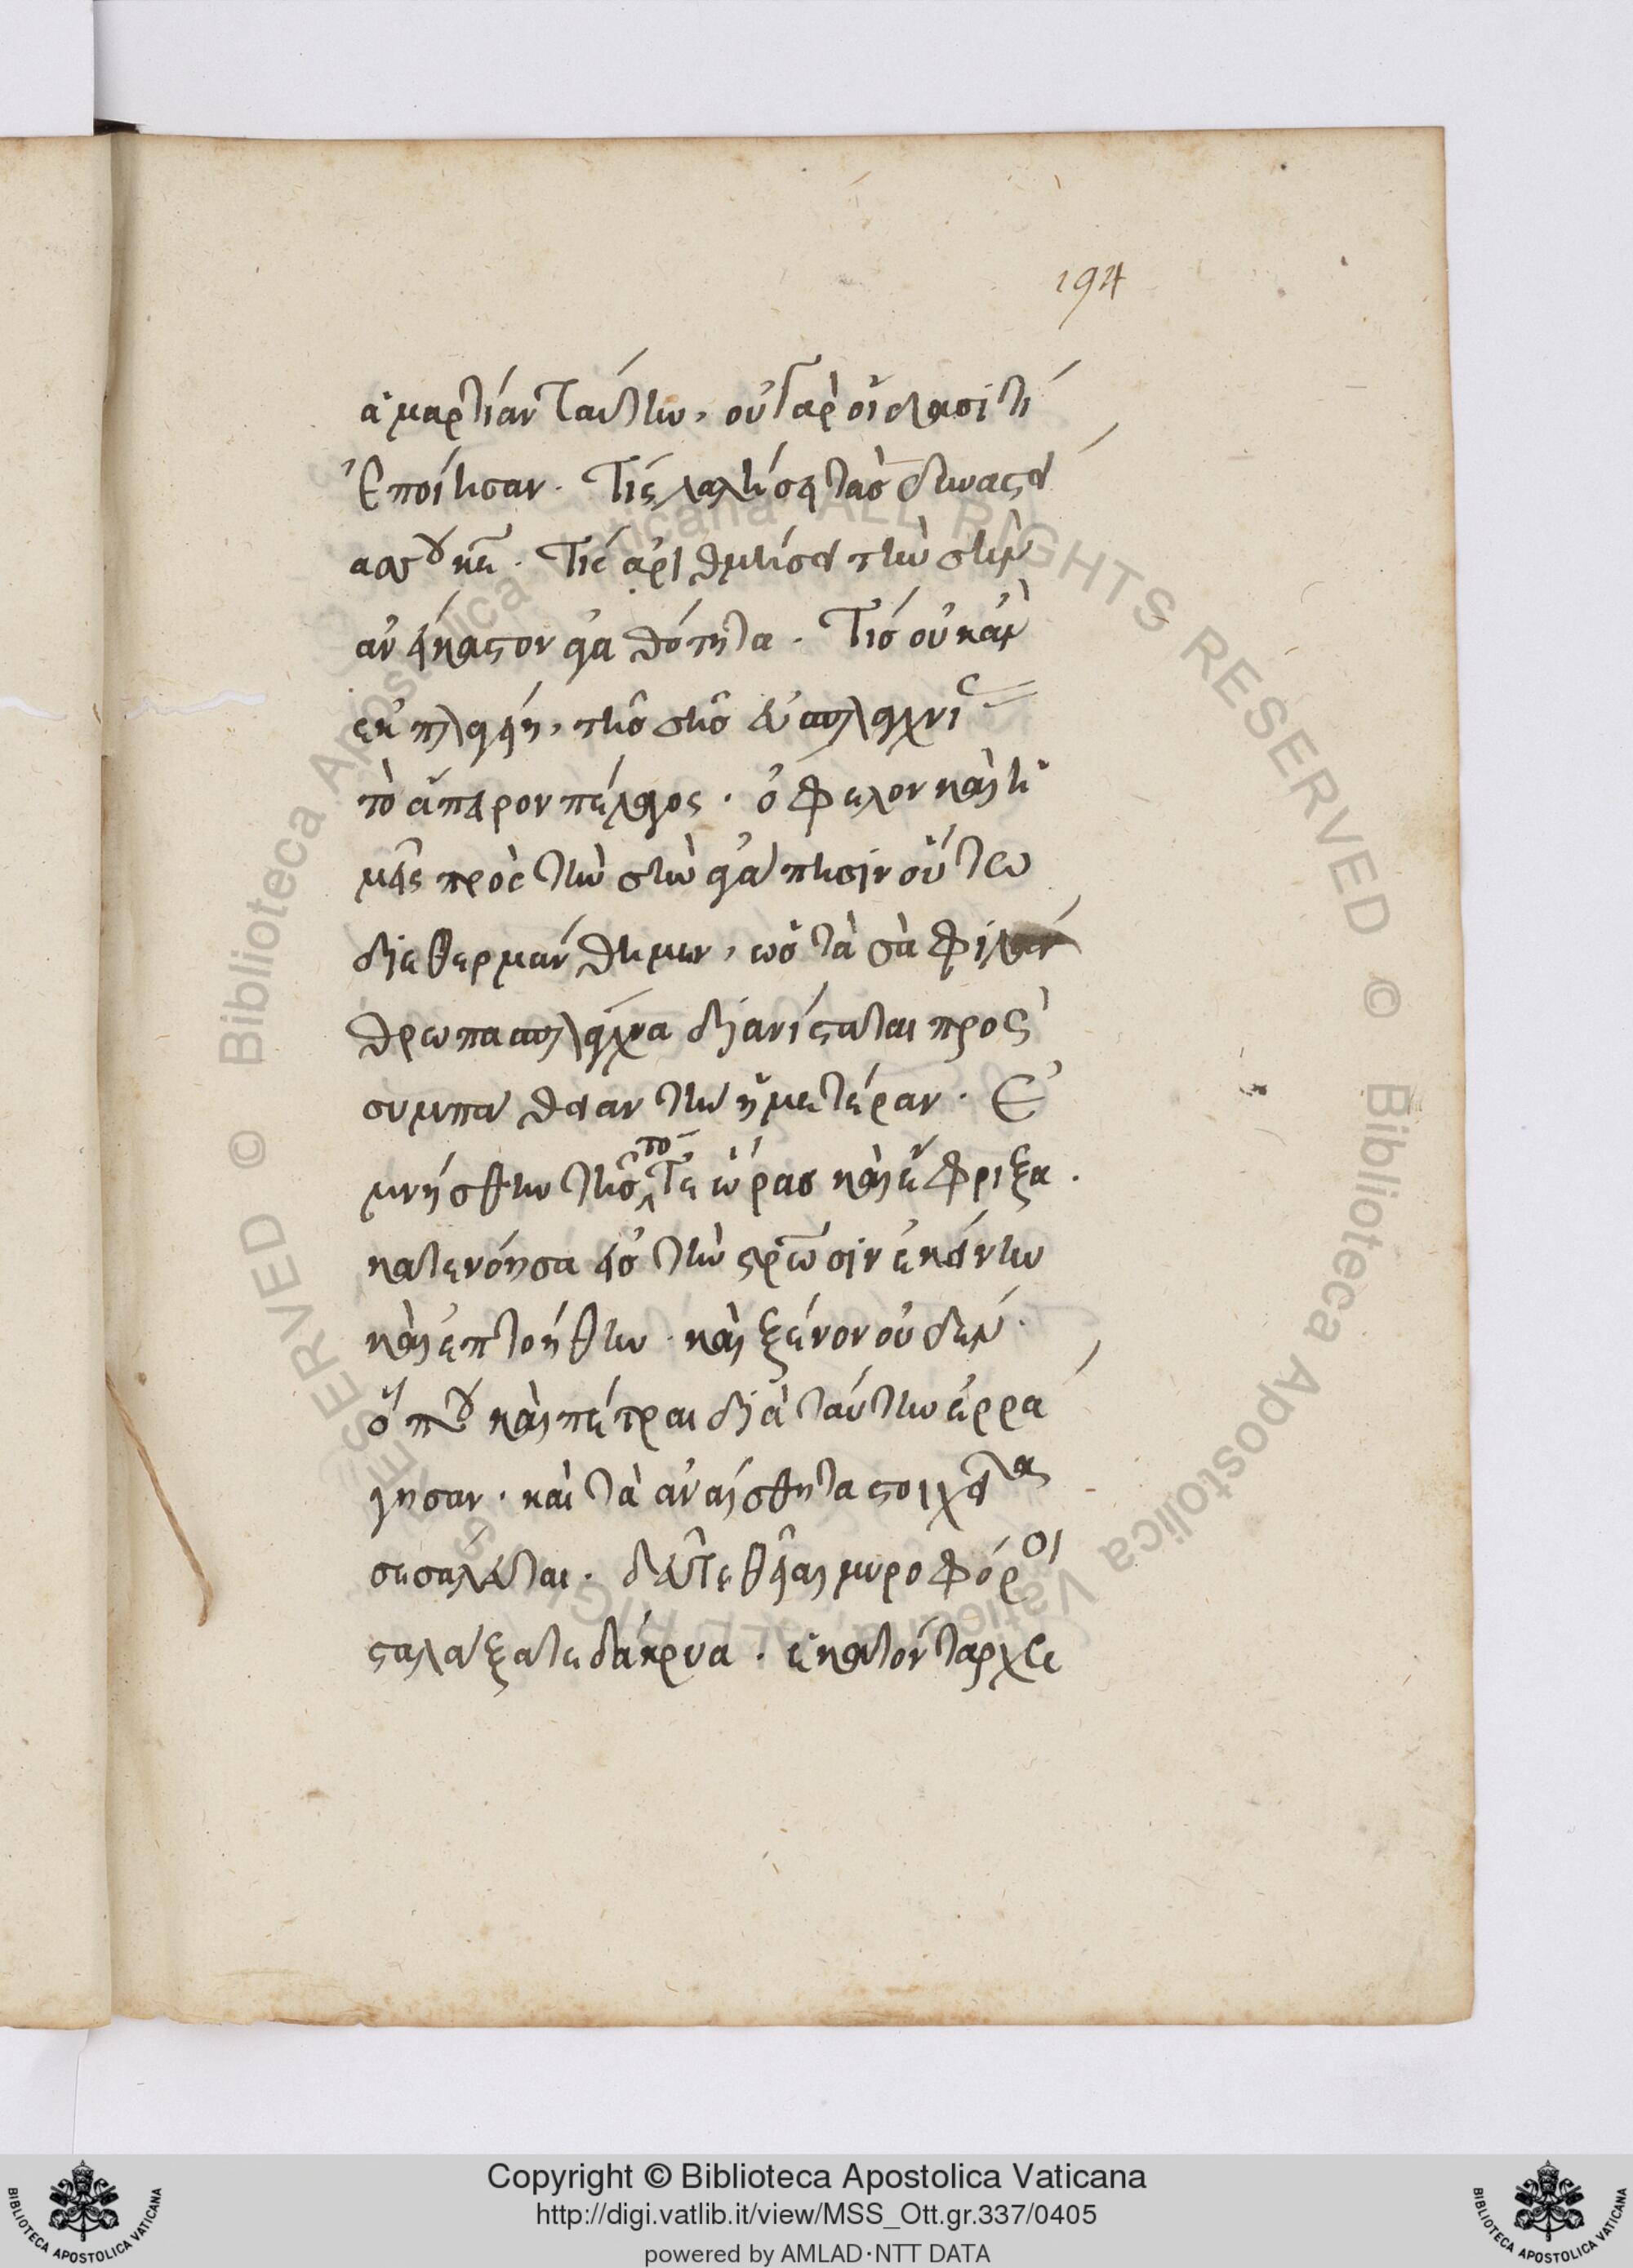 194
ἁμαρτίαν ταύτην, οὐ γὰρ οἴδασι τί
ἐποίησαν. Τίς λαλήσει τὰς δυναστεί
ας σου κε. Τίς ἀριθμήσει τὴν σὴν
ἀνείκαστον ἀγαθότητα. Τίς οὐκ ἂν
ἐκπλαγείη, τῆς σῆς εὐσπλαγχνίας
τὸ ἄπειρον πέλαγος. ὄφελον καὶ ἡ
μεῖς πρὸς τὴν σὴν ἀγάπησιν οὕτω
διεθερμάνθημεν, ὡς τὰ σὰ φιλάν
θρωπα σπλάγχνα διανίσταται πρὸς
συμπάθειαν τὴν ἡμετέραν. Ἐ
μνήσθην τῆς τότε ὥρας καὶ ἔφριξα.
κατενόησα εἰς τὴν σρωσιν ἐκείνην
καὶ ἐπτοήθην. καὶ ξένον οὐδὲν.
ὅπου καὶ πέτραι διὰ ταύτην ἐρρά
γησαν. καὶ τὰ ἀναίσθητα στοιχεῖα
σεσάλευται. δεῦτε θεῖαι μυροφόροι
σταλάξατε δάκρυα. ἑκατόνταρχε
Copyright © Biblioteca Apostolica Vaticana
http://digi.vatlib.it/view/MSS_Ott.gr.337/0405
powered by AMLAD·NTT DATA
© Biblioteca Apostolica Vaticana ALL RIGHTS RESERVED
© Biblioteca Apostolica Vaticana ALL RIGHTS RESERVED
BIBLIOTECA APOSTOLICA VATICANA
BIBLIOTECA APOSTOLICA VATICANA